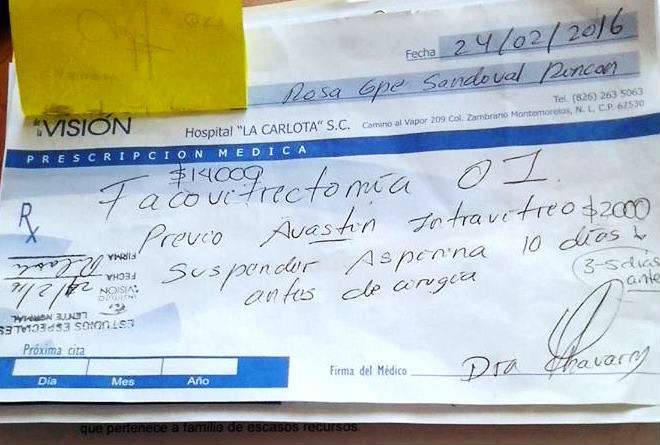 Fecha 24/02/2016
Rosa Gpe Sandoval Rincon
Tel. (826) 263 5063
VISIÓN Hospital "LA CARLOTA" S.C. Camino al Vapor 209 Col. Zambrano Montemorelos, N. L, C.P. 67530
PRESCRIPCION MEDICA
$14000
Rx Facovitrectomía OI
Previo Avastin Intravitreo $2000
Suspender Aspirina 10 días
antes de cirugía
3-5 días
antes
FIRMA
FECHA 24/2/16
VISION
LENTE NORMAL
ESTUDIOS ESPECIALES
Próxima cita
Día Mes Año
Firma del Médico Dra Chavarry
que pertenece a familia de escasos recursos